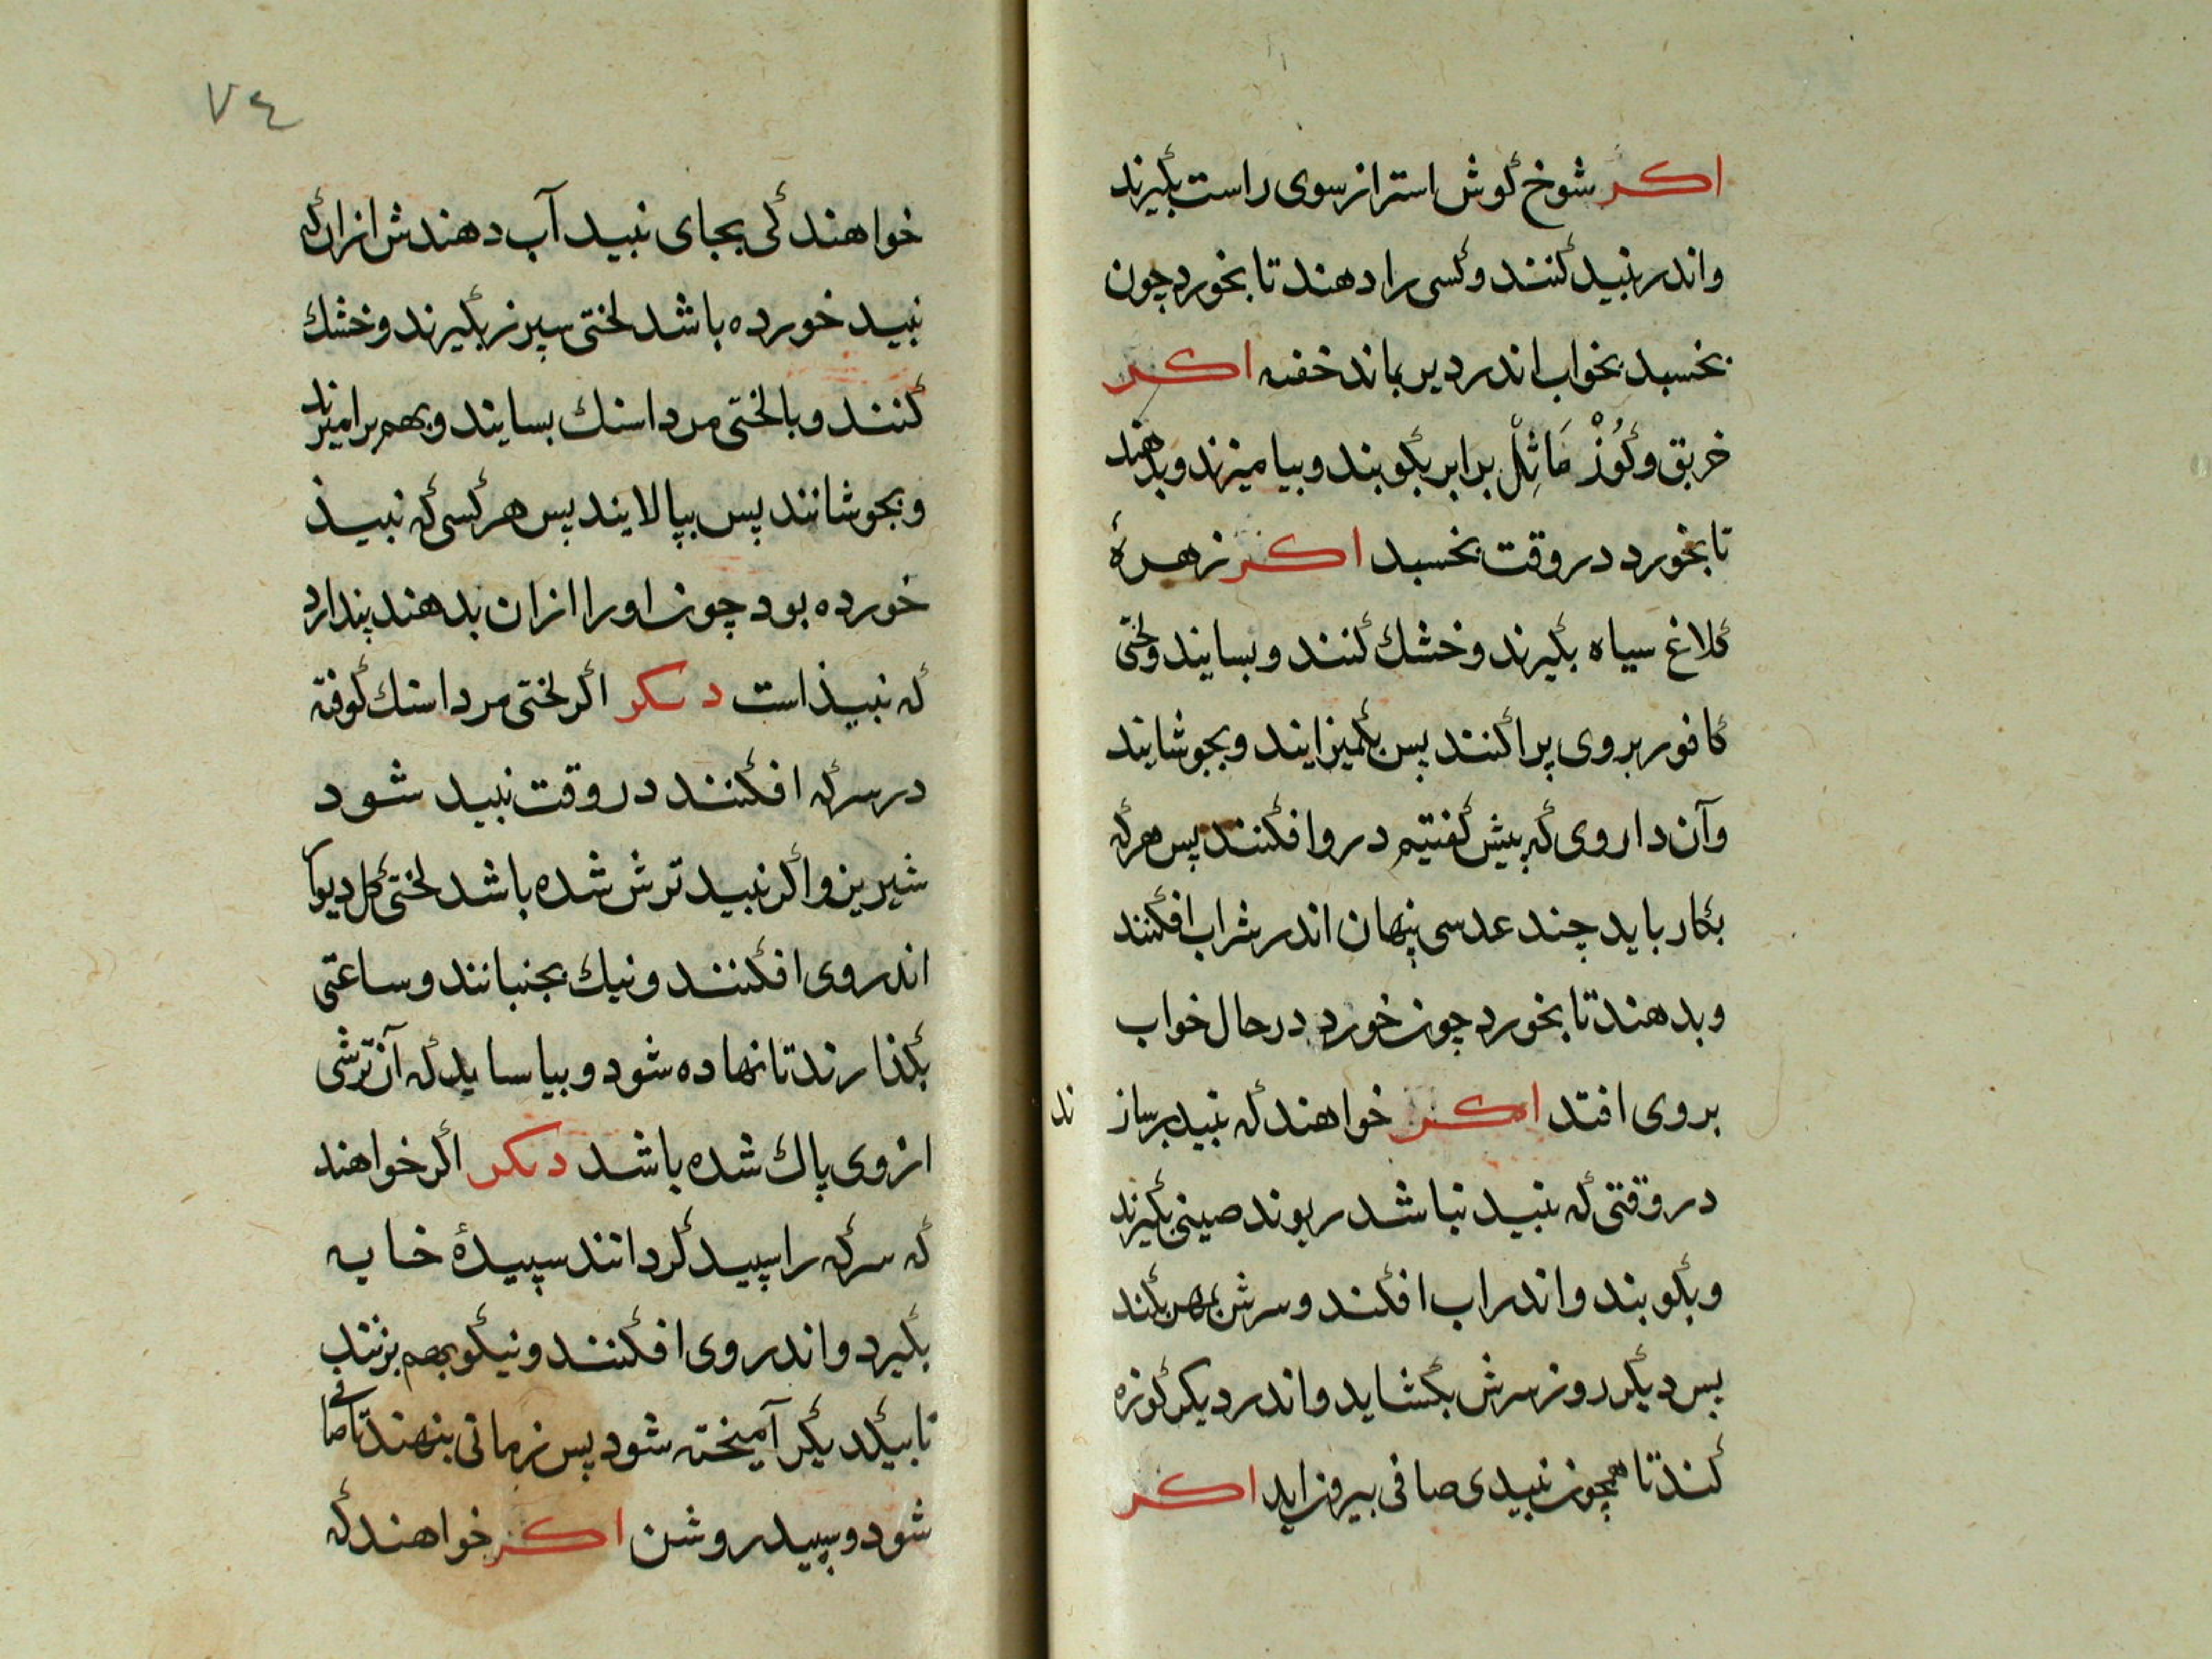 اكر شوخ كوش استر از سوی راست بكیرند
واندر نبید كنند و كسی را دهند تا بخورد چون
بخسبد بخواب اندر دیر بماند خفته اكر
خربق و كُوزْ مَاثِلْ برابر بكوبند و بیامیزند و بدهند
تا بخورد در وقت بخسبد اكر زهرهٔ
كلاغ سیاه بكیرند و خشك كنند و بسایند و لختی
كافور بروی پراكنند پس بكمیزایند و بجوشایند
وآن داروی كه پیش كفتیم درو افكنند پس هركه
بكار باید چند عدسی پنهان اندر شراب افكنند
و بدهند تا بخورد چون خورد در حال خواب
بروی افتد اكر خواهند كه نبید برسازند
در وقتی كه نبید نباشد ریوند صینی بكیرند
و بكوبند و اندر اب افكند و سرش بمهر بكند
پس دیكر روز سرش بكشاید و اندر دیكر كوزه
كند تا همچون نبیدی صافی بیرون اید اكر
٧٤
خواهند كی بجای نبید آب دهندش ازان كه
نبید خورده باشد لختی سپرز بكیرند و خشك
كنند و با لختی مرداسنك بسایند و بهم برامیزند
و بجوشانند پس بپالایند پس هركسی كه نبیذ
خورده بود چون او را ازان بدهند پندارد
كه نبیذ است دیكر اكر لختی مرداسنك كوفته
در سركه افكنند در وقت نبید شود
شیرین و اكر نبید ترش شده باشد لختی كل دیوار
اندر وی افكنند و نیك بجنبانند و ساعتی
بكذارند تا نهاده شود و بیاساید كه آن ترشی
از وی پاك شده باشد دیكر اكر خواهند
كه سركه را سپید كردانند سپیدهٔ خایه
بكیرد و اندر وی افكنند و نیكو بهم بزنند
تا بیكدیكر آمیخته شود پس زمانی بنهند تا صافی
شود و سپید روشن اكر خواهند كه